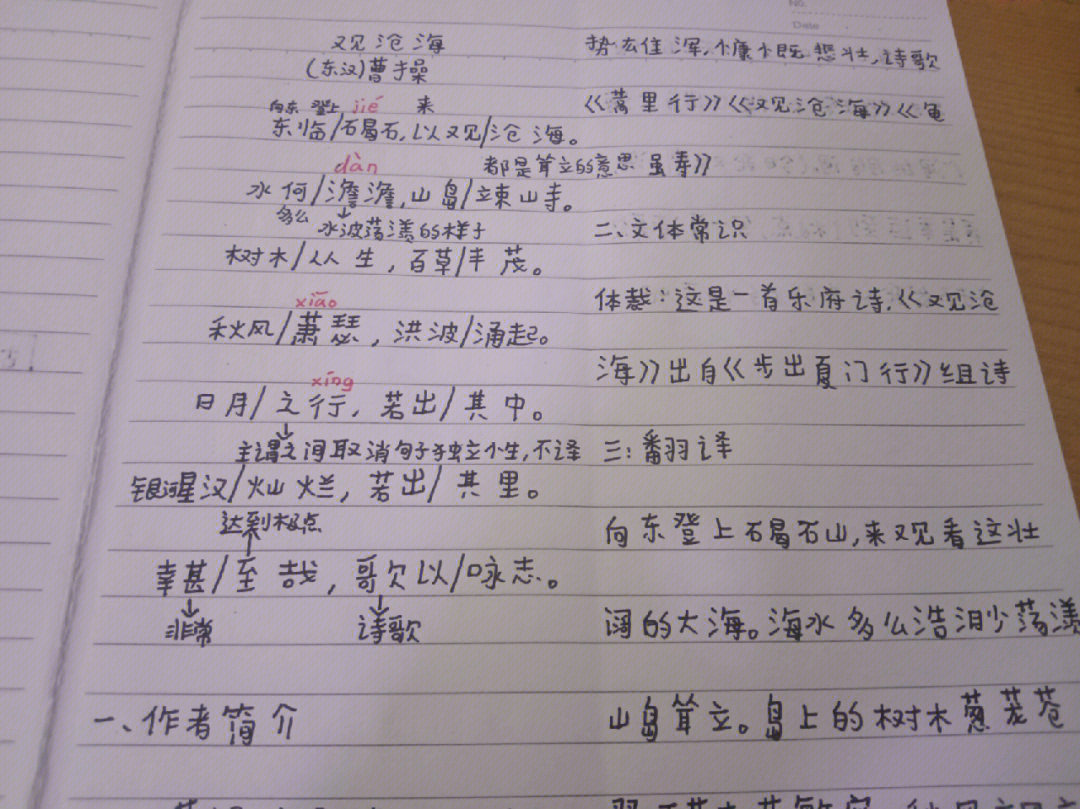 观沧海
(东汉)曹操
向东 登上 jié 来
东临/碣石,以观/沧海。
dàn
水何/澹澹,山岛/竦峙。
多么 水波荡漾的样子
都是耸立的意思
树木/丛生,百草/丰茂。
xiāo
秋风/萧瑟,洪波/涌起。
xíng
日月/之行,若出/其中。
主谓之间取消句子独立个生,不译
银河星汉/灿烂,若出/其里。
达到极点
幸甚/至哉,歌以/咏志。
非常 诗歌
一、作者简介
No.
Date
势宏伟浑,慷慨悲壮,诗歌
《蒿里行》《观沧海》《龟
虽寿》
二、文体常识
体裁:这是一首乐府诗,《观沧
海》出自《步出夏门行》组诗
三:翻译
向东登上碣石山,来观看这壮
阔的大海。海水多么浩渺荡漾
山岛耸立。岛上的树木葱茏苍